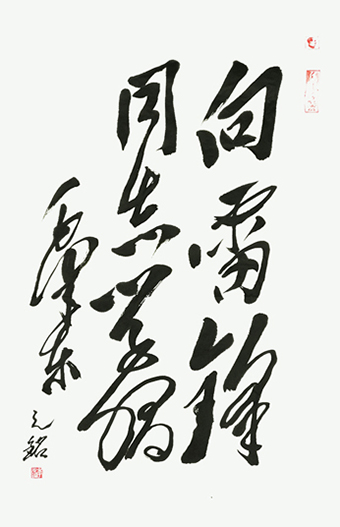 向雷锋
同志学习
毛泽东
元铭